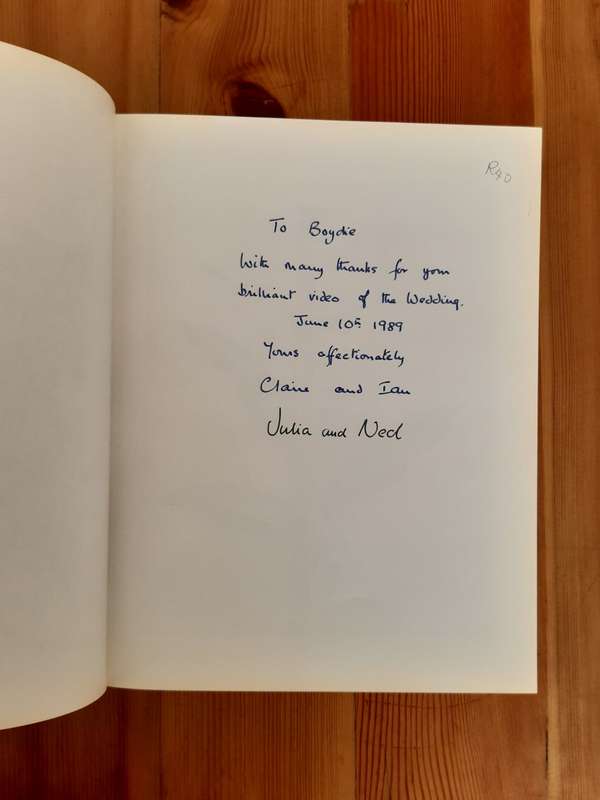 R40
To Boydie
With many thanks for your
brilliant video of the Wedding.
June 10th 1989
Yours affectionately
Claire and Ian
Julia and Ned